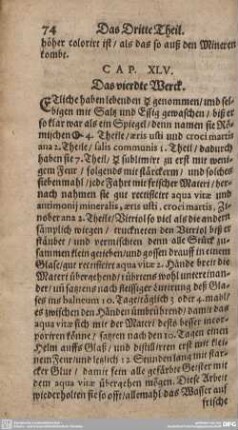 74 Das Dritte Theil.
höher colorirt ist / als das so auß den Mineren
kombt.
CAP. XLV.
Das vierdte Werck.
ETliche haben lebenden ☿ genommen / und sel-
bigen mit Saltz und Essig gewaschen / biß er
so klar war als ein Spiegel / denn namen sie Rö-
mischen 4. Theile / æris usti und croci martis
ana 2. Theile / salis communis 1. Theil / dadurch
haben sie 7. Theil / ☿ sublimirt zu erst mit weni-
gem Feur / folgends mit stärckerm / und solches
siebenmahl / jede Fahrt mit frischer Materi / her-
nach nahmen sie gut rectificirt aqua vitæ und
antimonij mineralis, æris usti, croci martis, Zi-
nober ana 2. Theile / Virtiol so viel als die andern
sämplich wiegen / truckneten den Vitriol biß er
stäubet / und vermischten denn alle Stück zu-
sammen klein gerieben / und gossen drauff in einem
Glase / gut rectificirt aqua vitæ 2. Hände breit die
Materi übergehend / rührens wohl untereinan-
der / uñ satzens nach fleissiger lutirung deß Gla-
ses ins balneum 10. Tage / täglich 3 oder 4. mahl /
es zwischen den Händen umbrührend / damit das
aqua vitæ sich mit der Materi desto besser incor-
poriren könne / satzen nach den 10. Tagen einen
Helm auffs Glaß / und distillirten erst mit klei-
nem Feur / und letzlich 12 Stunden lang mit star-
cker Glut / damit sein alle gefärbte Geister mit
dem aqua vitæ übergehen mögen. Diese Arbeit
wiederholten sie so offt / allemahl das Wasser auf
frische